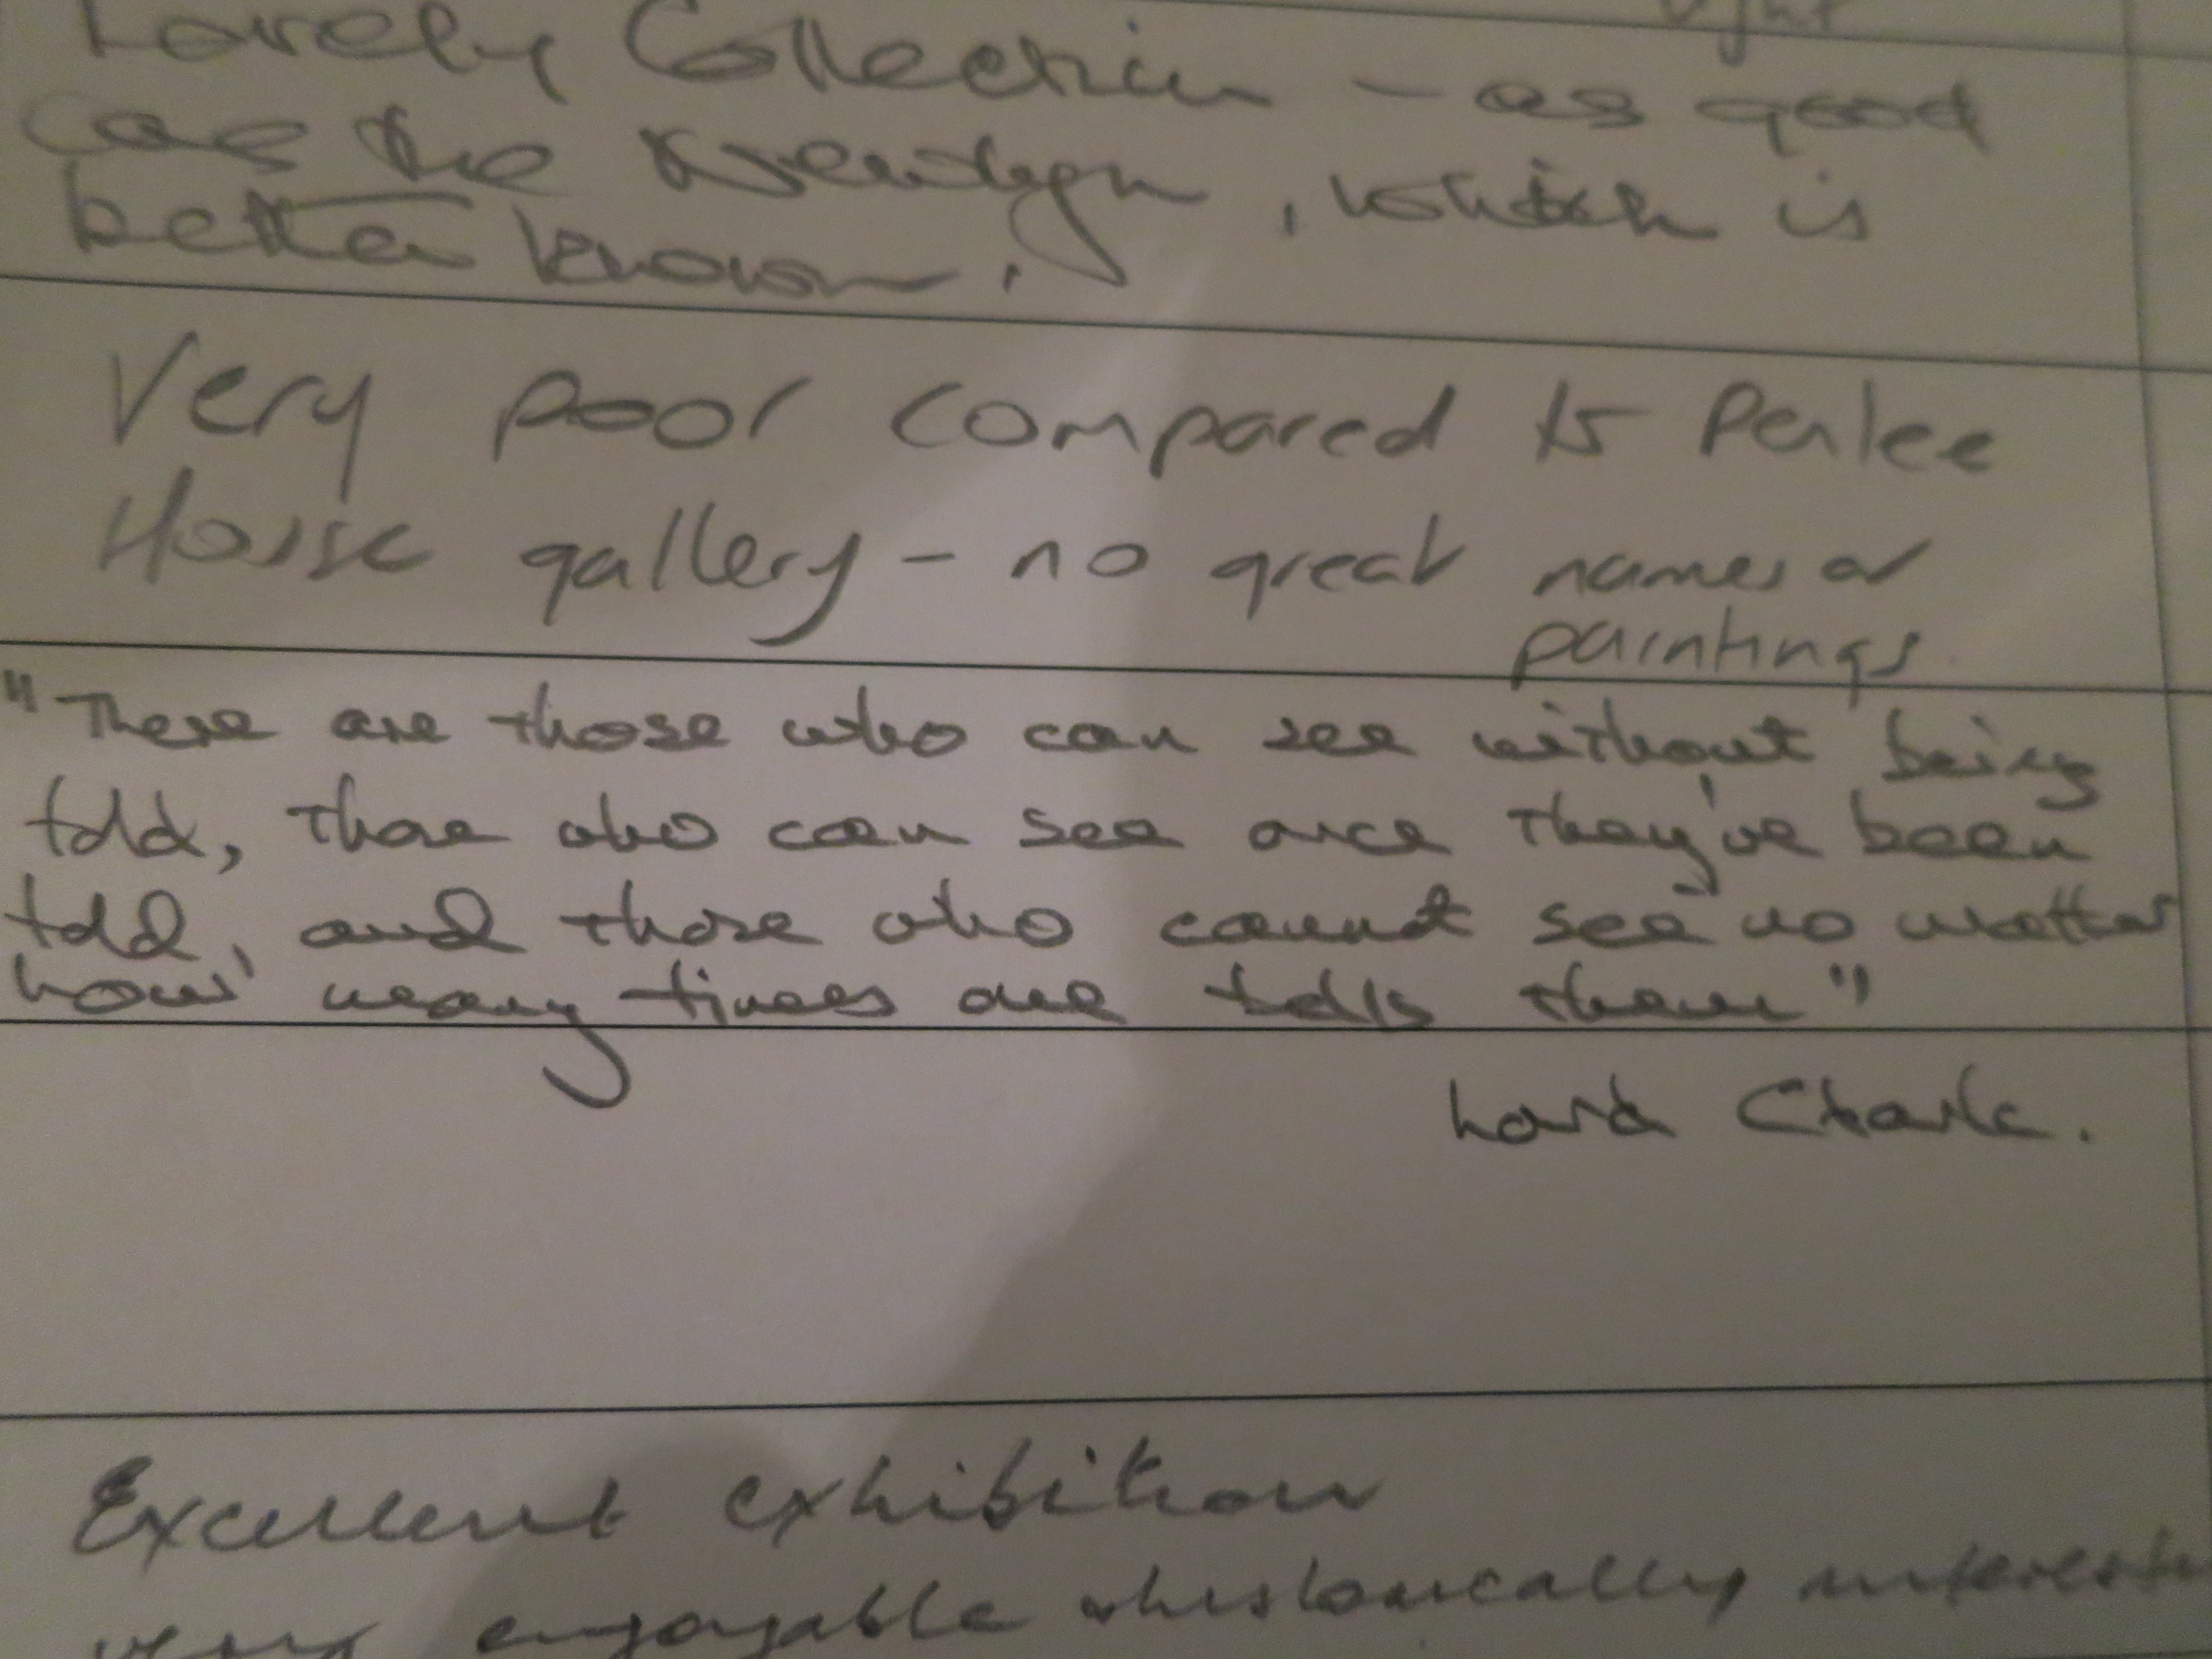 Lovely Collection - as good
as the Newlyn, which is
better known.
Very poor compared to Penlee
House gallery - no great names or
paintings
"There are those who can see without being
told, those who can see once they've been
told, and those who cannot see no matter
how many times one tells them"
Lord Clark.
Excellent exhibition
very enjoyable & historically